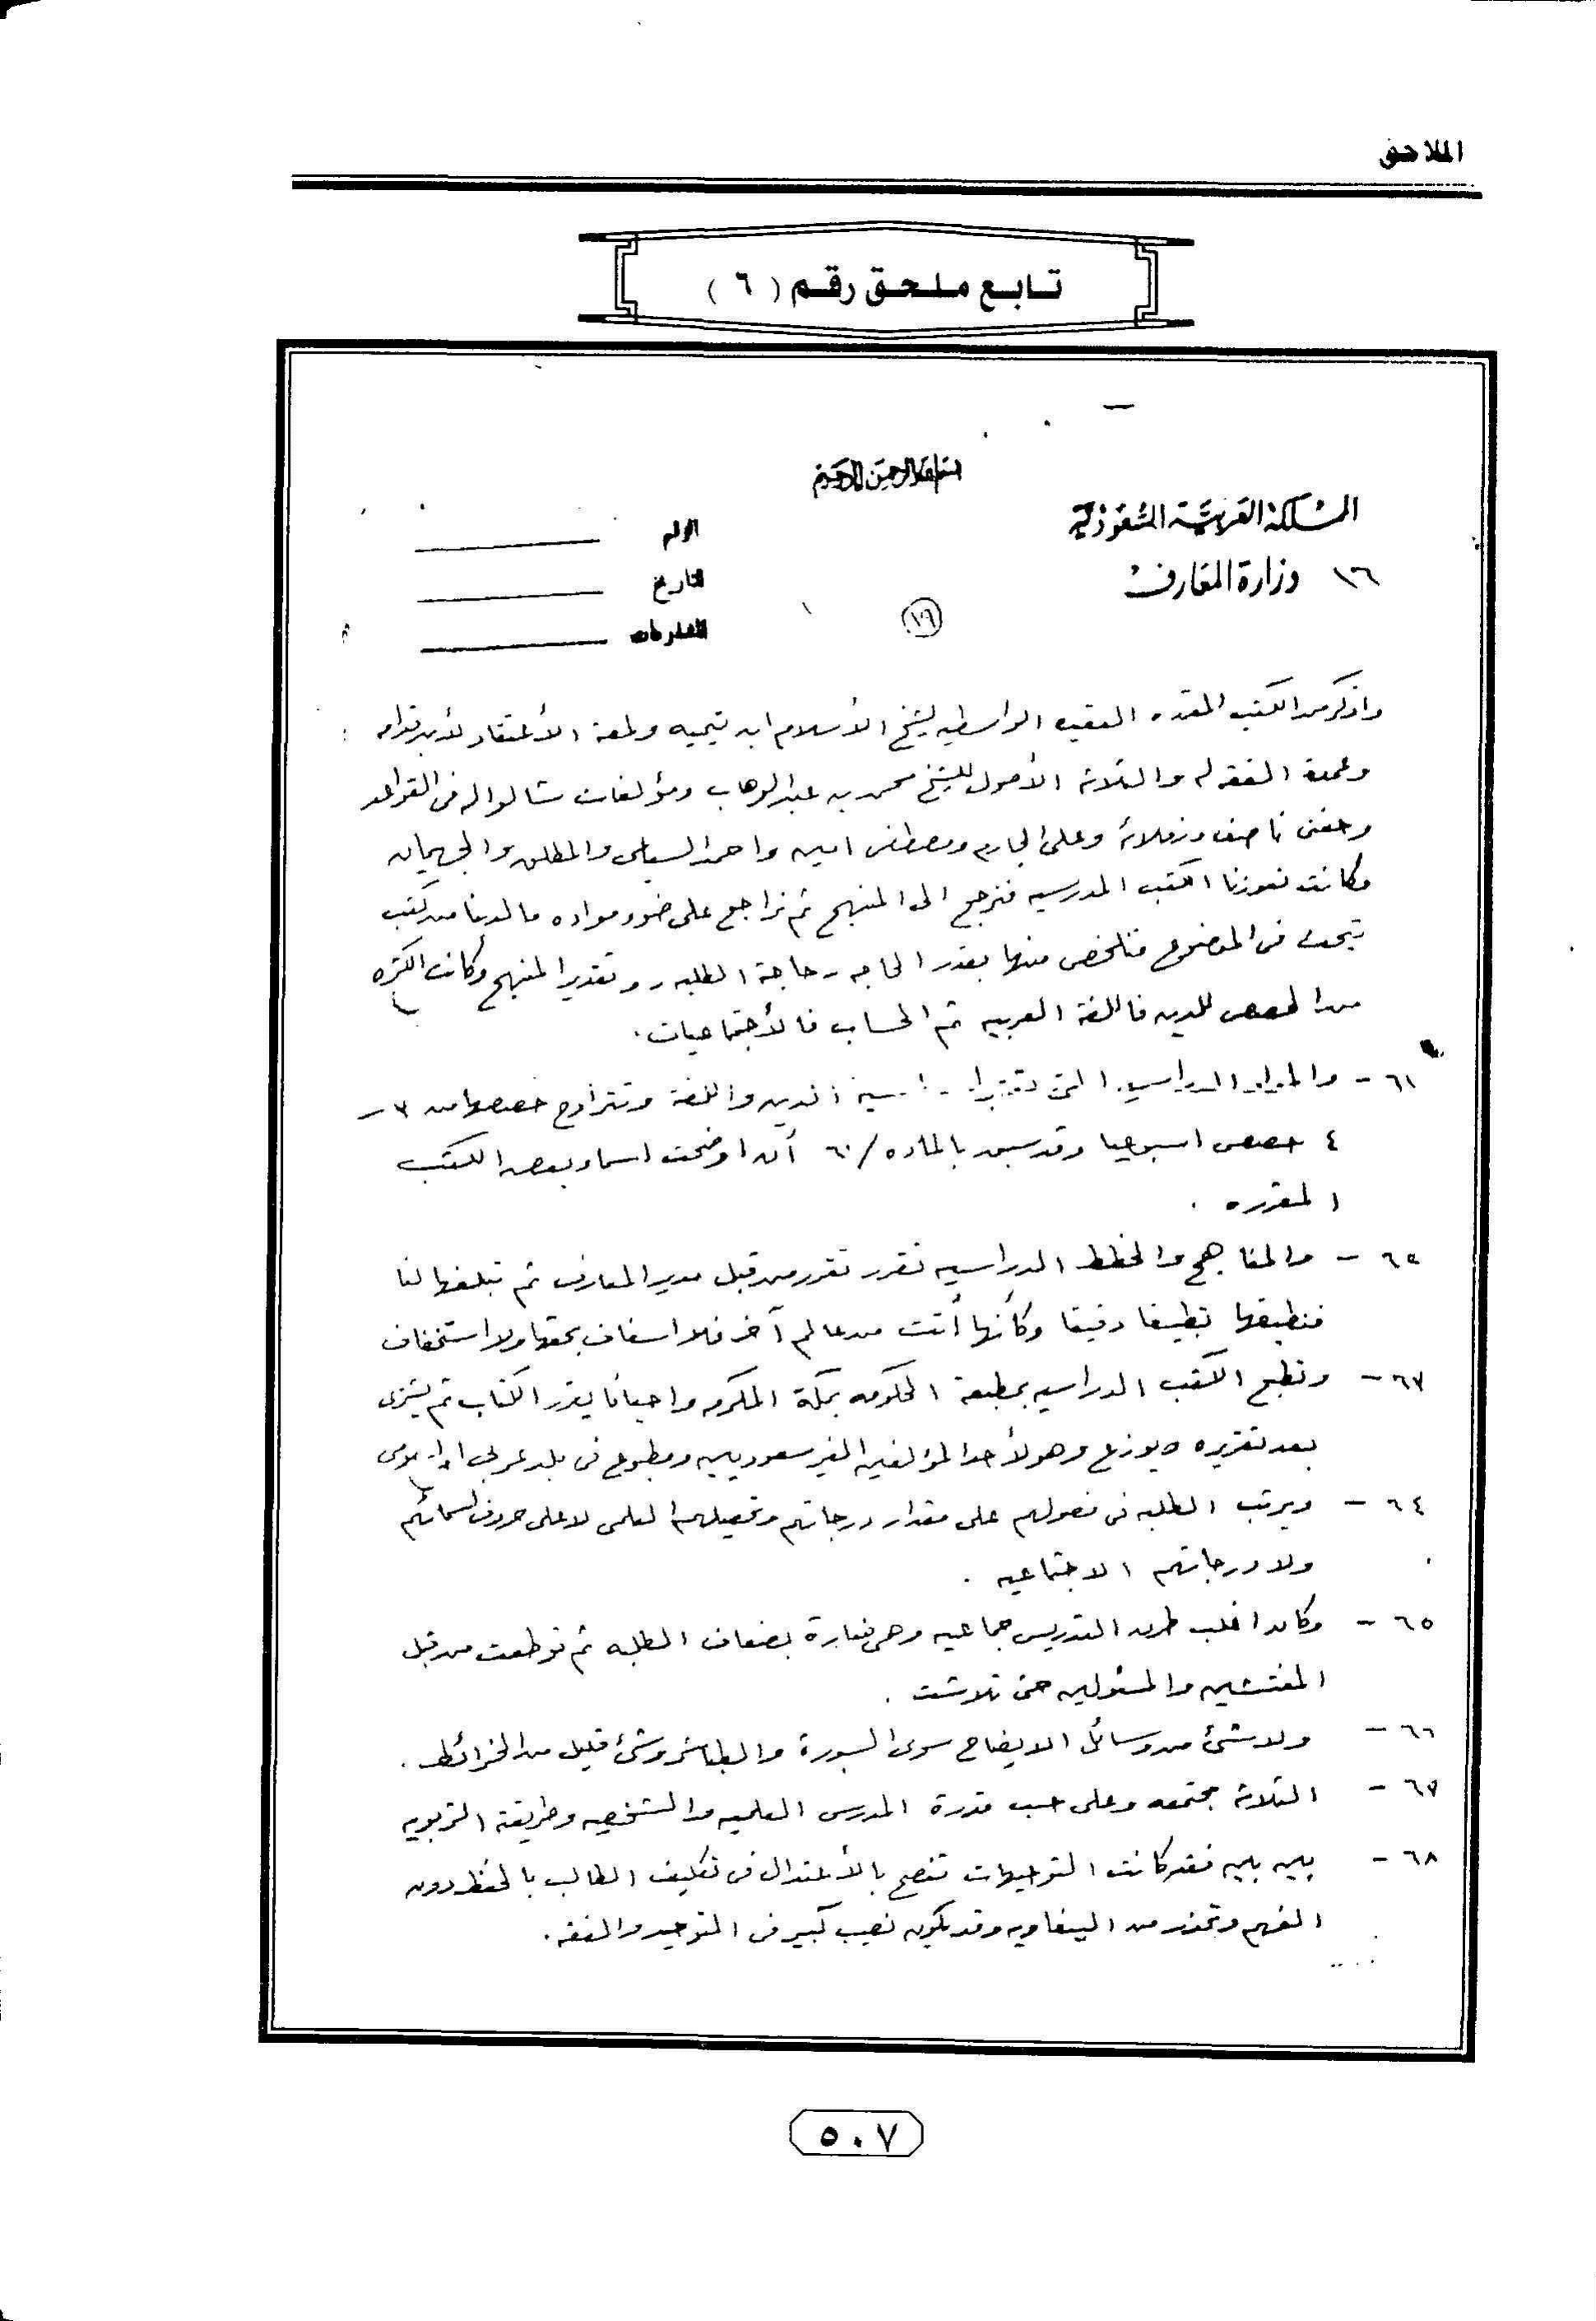 الملاحق
تابع ملحق رقم ( ٦ )
بسم الله الرحمن الرحيم
المملكة العربية السعودية
الرقم
١٦ وزارة المعارف
التاريخ
١٦
المشفوعات
واذكر من الكتب المقرره العقيده الواسطيه لشيخ الأسلام ابن تيميه ولمعة الأعتقاد لأبن قدامه
وعمدة الفقه له والثلاثة الأصول للشيخ محمد بن عبدالوهاب ومؤلفات في القواعد
وحفني ناصف وزملائه وعلي الجارم ومصطفى امين واحمد السباعي والمطلق والجهيمان
وكانت تعوزنا الكتب المدرسيه فنرجع الى المنهج ثم نراجع على ضوء مواده ما لدينا من كتب
تبحث في الموضوع فنلخص منها بقدر الحاجه - حاجة الطلبه - وتقدير المنهج وكانت الكثره
من الحصص للدين فاللغة العربيه ثم الحساب فالأجتماعيات .
٦١ - والمواد الدراسيه التي الدين واللغة وتتراوح حصصها من ٣ -
٤ حصص اسبوعيا وقد سبق بالماده / ٦٠ أن اوضحت اسماء بعض الكتب
المقرره .
٦٢ - والمناهج والخطط الدراسيه تقرر تقرر من قبل مدير المعارف ثم تبلغها لنا
فنطبقها تطبيقا دقيقا وكأنها أتت من عالم آخر فلا اسفاف بحقها ولا استخفاف
٦٣ - وتطبع الكتب الدراسيه بمطبعة الحكومه بمكة المكرمه واحيانا يقرر الكتاب ثم يشترى
بعد تقريره ويوزع وهو لأحد المؤلفين الغير سعوديين ومطبوع في بلد عربي اسلامي
٦٤ - ويرتب الطلبه في فصولهم على مقدار درجاتهم وتحصيلهم العلمي لا على حروف اسمائهم
ولا درجاتهم الاجتماعيه .
٦٥ - وكان اغلب طرق التدريس جماعيه وهي ضارة بضعاف الطلبه ثم من قبل
المفتشين والمسئولين حتى تلاشت .
٦٦ - ولا شئ من وسائل الايضاح سوى السبورة والطباشر وشئ قليل من الخرائط .
٦٧ - الثلاثة مجتمعه وعلى حسب قدرة المدرس العلميه والشخصيه وطريقته التربويه
٦٨ - بين بين فقد كانت التوجيهات تنصح بالأعتدال في تكليف الطالب بالحفظ دون
الفهم وتحذر من الببغاويه وقد يكون نصيب كبير في التوحيد والفقه .
٥٠٧